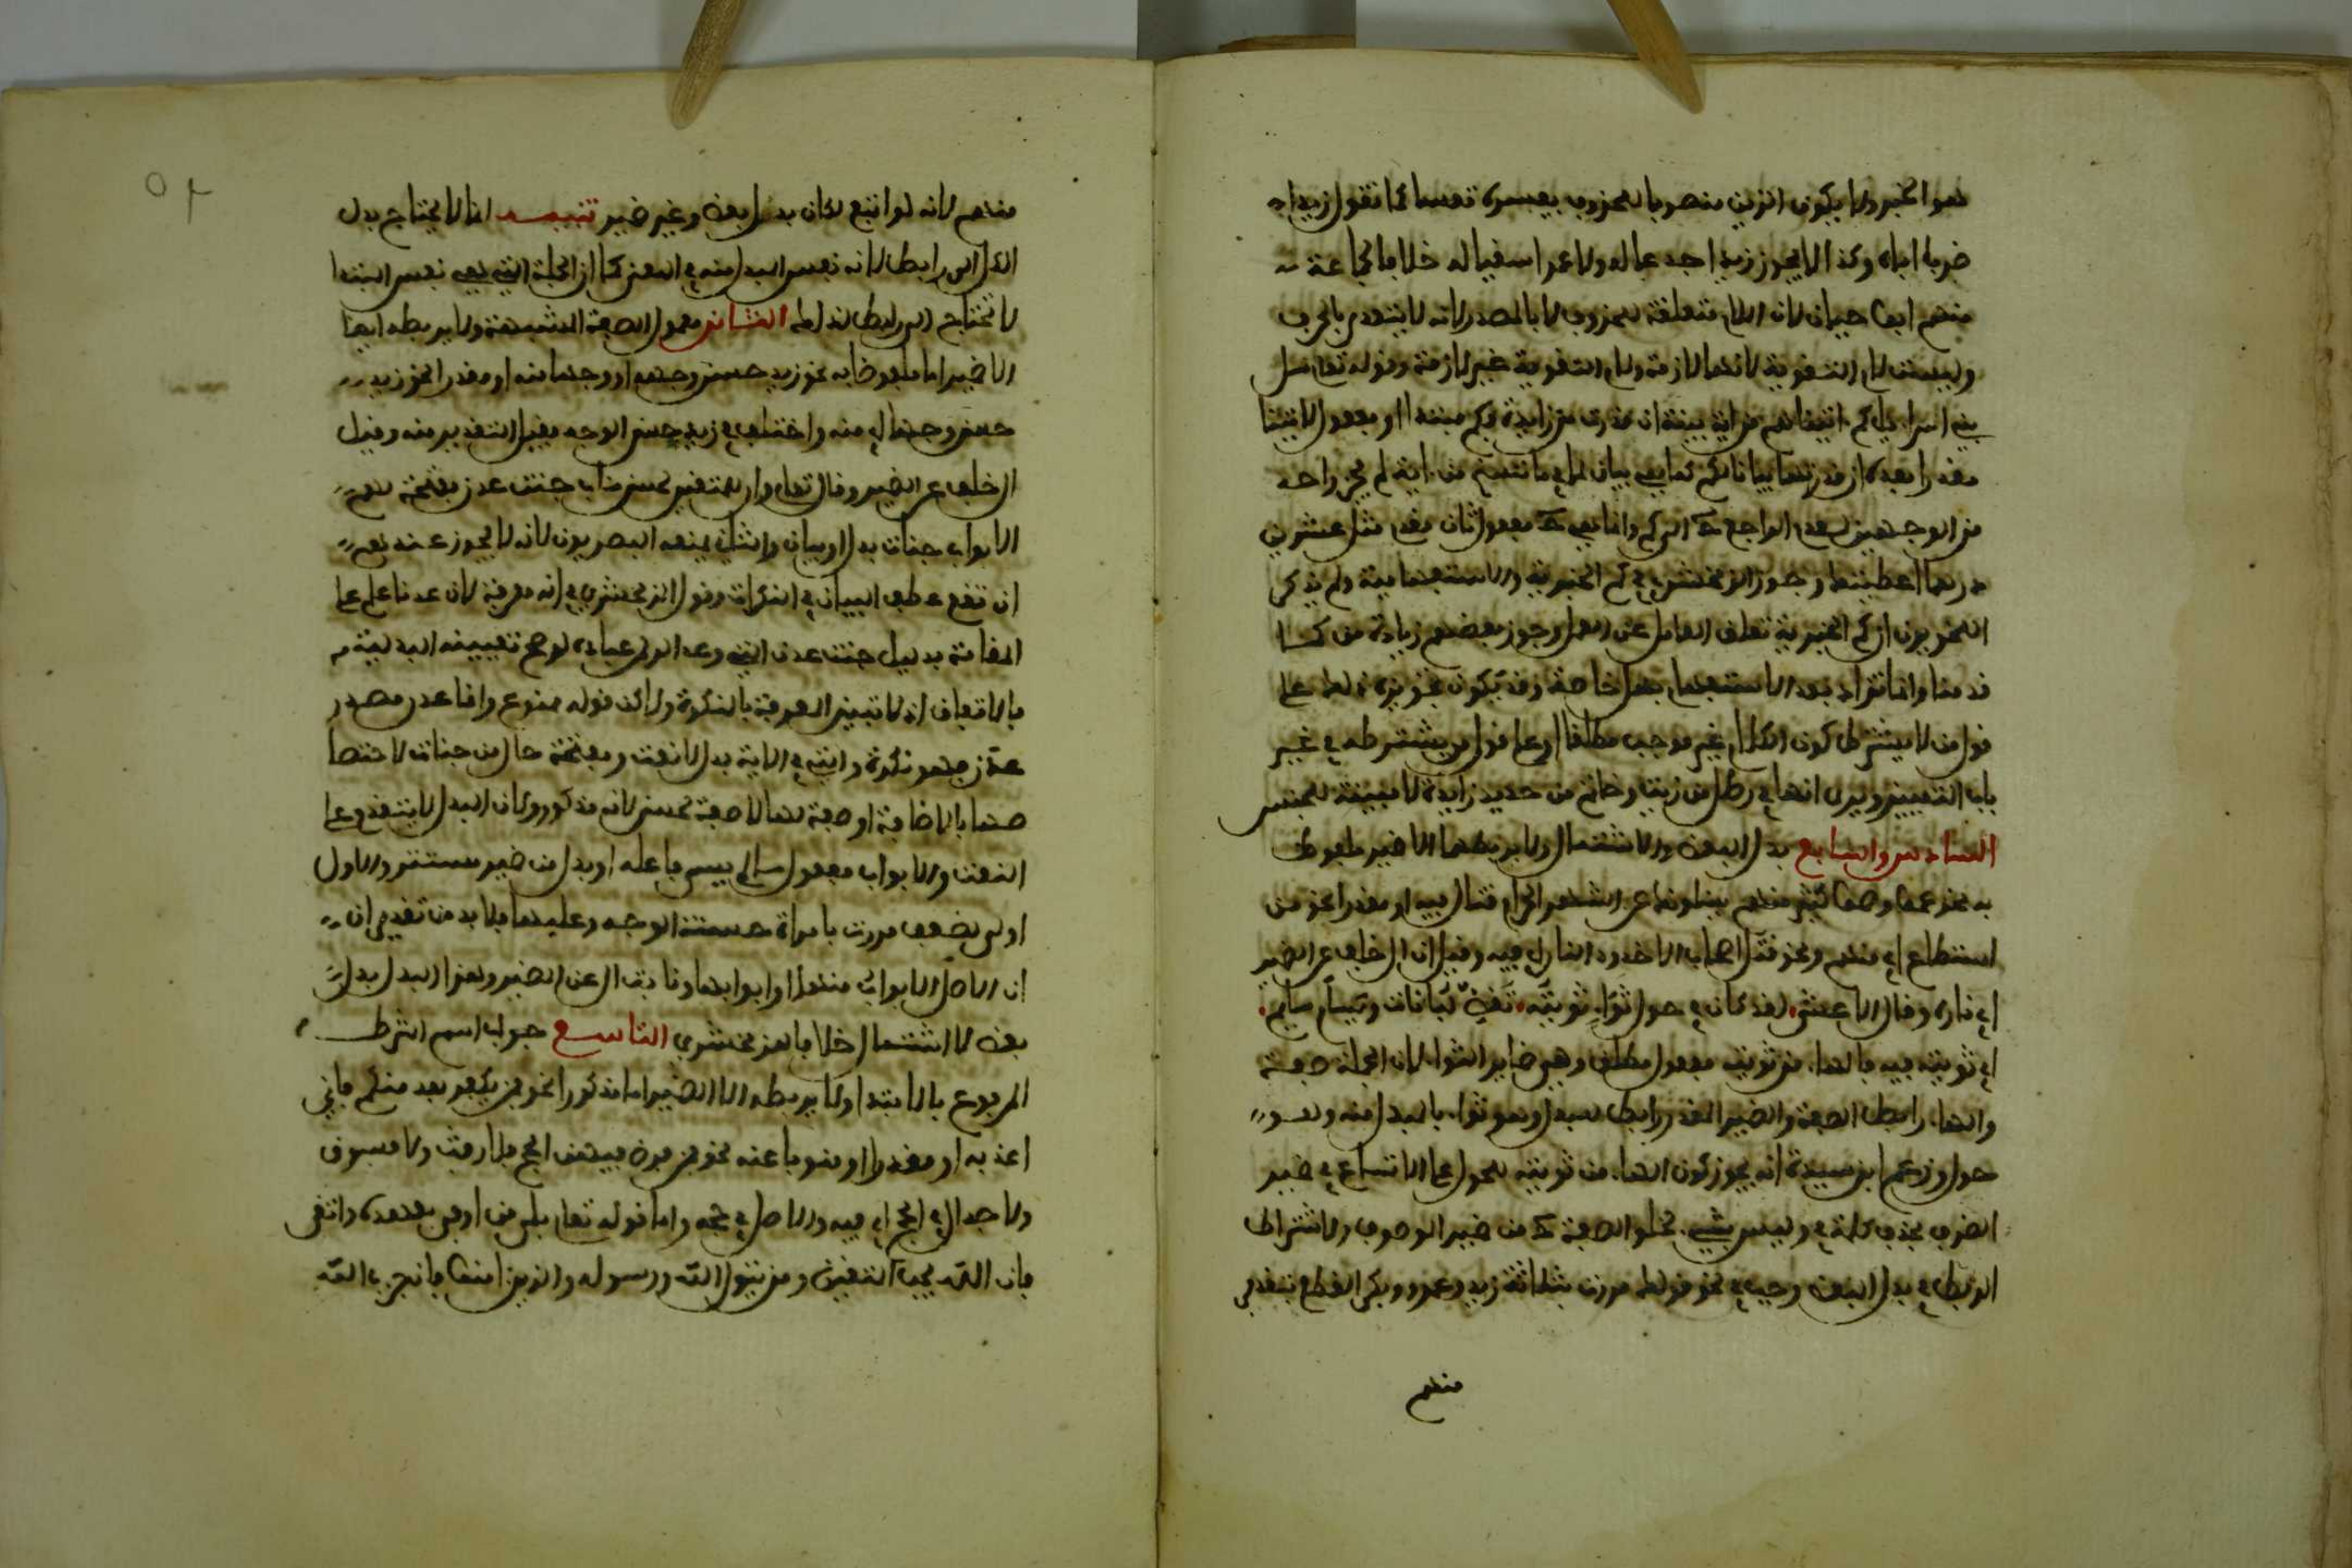 هو الخبر ولا يكون الذين منصوبا بمحذوف يفسره تعسا كما تقول زيدا
ضربا اياه وكذا لا يجوز زيدا جدعا له ولا عمرا سقيا له خلافا لجماعة
منهم ابو حيان لان اللام متعلقة بمحذوف لا بالمصدر لانه لا يتعدى بالحرف
وليست لام التقوية لانها لازمة ولام التقوية غير لازمة وقوله تعالى سل
بني اسراءيل كم ءاتيناهم من اية بينة ان قدرت من زايدة فكم مبتدا او مفعول لاتينا
مقدرا بعده از قدرتها بيانا لكم كما هي بيان لما في ما ننسخ من اية لم يجز واحد
من الوجهين لعدم الراجع ح الى كم وانما هي ح مفعول ثان مقدم مثل عشرين
درهما اعطيتك وجوز الزمخشري في كم الخبرية والاستفهامية ولم يذكر
النحويون ان كم الخبرية تعلق العامل عن العمل وجوز بعضهم زيادة من كما
قدمنا وانما تزاد بعد الاستفهام بهل خاصة وقد يكون تجويزه ذلك على
قول من لا يشترط كون الكلام غير موجب مطلقا او على قول من يشترطه في غير
باب التمييز ويرى انها في رطل من زيت وخاتم من حديد زايدة لا مبينة للجنس
السادس والسابع بدل البعض والاشتمال ولا يربطهما الا الضمير ملفوظا
به نحو عموا وصموا كثير منهم يسئلونك عن الشهر الحرام قتال فيه او مقدرا نحو من
استطاع اي منهم ونحو قتل اصحاب الاخدود النار اي فيه وقيل ان ال خلف عن الضمير
اي ناره وقال الاعشى لقد كان في حول ثواء ثويته تقضي لبانات ويسأم سايم
اي ثويته فيه فالهاء من ثويته مفعول مطلق وهي ضمير الثواء لان الجملة صفته
والهاء رابط الصفة والضمير المقدر رابط للبدل وهو ثواء بالمبدل منه وهو
حول وزعم ابن سيدة انه يجوز كون الهاء من ثويته للحول على الاتساع في ضمير
الظرف بحذف كلمة في وليس بشيء لخلو الصفة ح من ضمير الموصوف ولاشتراط
الربط في بدل البعض وجب في نحو قولك مررت بثلاثة زيد وعمرو وبكر القطع بتقدير
منهم
منهم لانه لو اتبع لكان بدل بعض وغير ضمير تنبيه انما لا يحتاج بدل
الكل الى رابط لانه نفس المبدل منه في المعنى كما ان الجملة التي هي نفس المبتدا
لا تحتاج الى رابط لذلك الثامن معمول الصفة المشبهة ولا يربطه ايضا
الا الضمير اما ملفوظا به نحو زيد حسن وجهه او وجها منه او مقدرا نحو زيد
حسن وجها اي منه واختلف في زيد حسن الوجه فقيل التقدير منه وقيل
ال خلف عن الضمير وقال تعالى وان للمتقين لحسن مئاب جنت عدن مفتحة لهم
الابواب جنات بدل او بيان والثاني يمنعه البصريون لانه لا يجوز عندهم
ان تقع عطف البيان في النكرات وقول الزمخشري انه معرفة لان عدنا علم على
الاقامة بدليل جنت عدن التي وعد الرحمن عباده لو صح تعينت البدلية
بالاتفاق اذ لا تبين المعرفة بالنكرة ولاكن قوله ممنوع وانما عدن مصدر
عدن فهو نكرة والتي في الاية بدل لا نعت ومفتحة حال من جنات لاختصا
صها بالاضافة او صفة لها لا صفة لحسن لانه مذكر ولان البدل لا يتقدم على
النعت والابواب مفعول ما لم يسم فاعله او بدل من ضمير مستتر والاول
اولى لضعف مررت بامراة حسنة الوجه وعليهما فلا بد من تقدير ان
ان الاصل الابواب منها او ابوابها ونابت ال عن الضمير وهذا البدل بدل
بعض لا اشتمال خلافا للزمخشري التاسع جواب اسم الشرط
المرفوع بالابتداء ولا يربطه الا الضمير اما مذكورا نحو فمن يكفر بعد منكم فاني
اعذبه او مقدرا او منوبا عنه نحو فمن فرض فيهن الحج فلا رفث ولا فسوق
ولا جدال في الحج اي فيه والاصل في حجه واما قوله تعالى بلى من اوفى بعهده واتقى
فان الله يحب المتقين ومن يتول الله ورسوله والذين امنوا فان حزب الله